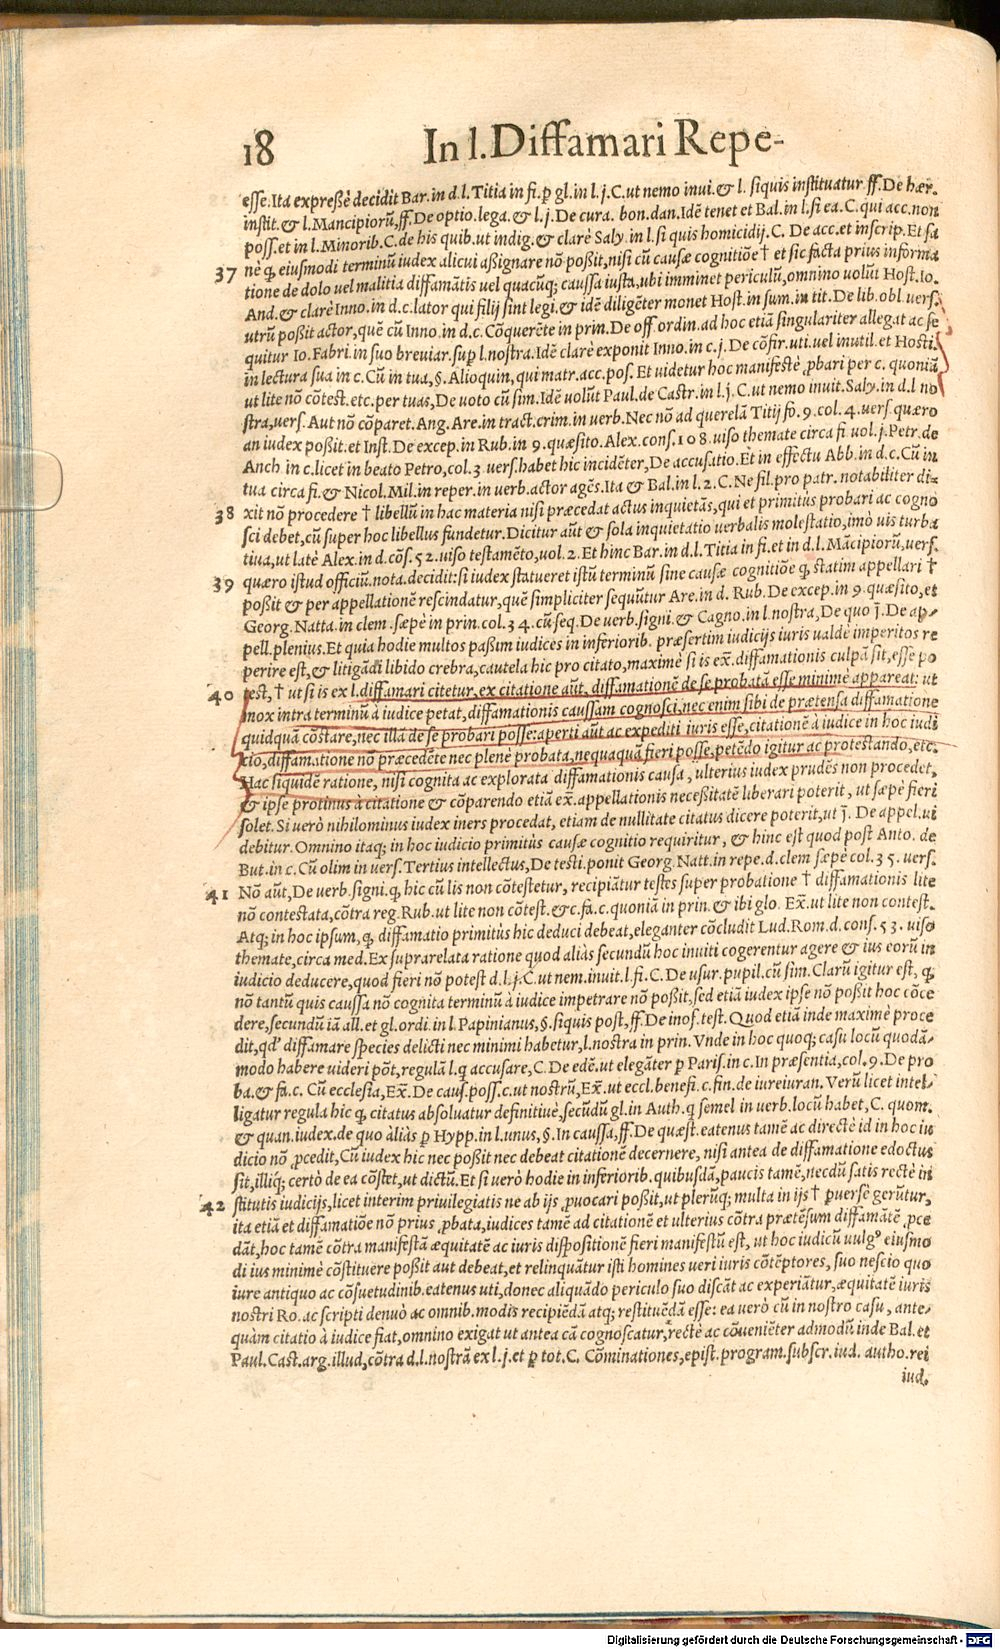 18 In l. Diffamari Repe-
esse. Ita expreßè decidit Bar. in d. l. Titia in fi. ꝑ gl. in l. j. C. ut nemo inui. & l. siquis instituatur ff. De hær.
instit. & l. Mancipiorũ, ff. De optio. lega. & l. j. De cura. bon. dan. Idẽ tenet et Bal. in l. si ea. C. qui acc. non
poss. et in l. Minorib. C. de his quib. ut indig. & clarè Saly. in l. si quis homicidij. C. De acc. et inscrip. Et sa
37 nè ꝙ eiusmodi terminũ iudex alicui aßignare nõ poßit, nisi cũ causæ cognitiõe † et sic facta prius informa
tione de dolo uel malitia diffamãtis uel quacũq; caussa iusta, ubi imminet periculũ, omnino uolũt Host. Io.
And. & clarè Inno. in d. c. lator qui filij sint legi. & idẽ diligẽter monet Host. in sum. in tit. De lib. obl. uers.
utrũ poßit actor, quẽ cũ Inno. in d. c. Cõquerẽte in prin. De off. ordin. ad hoc etiã singulariter allegat ac se
quitur Io. Fabri. in suo breuiar. suꝑ l. nostra. Idẽ clarè exponit Inno. in c. j. De cõfir. uti. uel inutil. et Hosti.
in lectura sua in c. Cũ in tua, §. Alioquin, qui matr. acc. pos. Et uidetur hoc manifestè ꝓbari per c. quoniã
ut lite nõ cõtest. etc. per tuas, De uoto cũ sim. Idẽ uolũt Paul. de Castr. in l. j. C. ut nemo inuit. Saly. in d. l. no
stra, uers. Aut nõ cõparet. Ang. Are. in tract. crim. in verb. Nec nõ ad querelã Titij fo. 9. col. 4. uers. quæro
an iudex poßit. et Inst. De excep. in Rub. in 9. quæsito. Alex. cons. 108. uiso themate circa fi. uol. j. Petr. de
Anch. in c. licet in beato Petro, col. 3. uers. habet hic incidẽter, De accusatio. Et in effectu Abb. in d. c. Cũ in
tua circa fi. & Nicol. Mil. in reper. in uerb. actor agẽs. Ita & Bal. in l. 2. C. Ne fil. pro patr. notabiliter di-
38 xit nõ procedere † libellũ in hac materia nisi præcedat actus inquietãs, qui et primitùs probari ac cogno
sci debet, cũ super hoc libellus fundetur. Dicitur aũt & sola inquietatio uerbalis molestatio, imò uis turba
tiua, ut latè Alex. in d. cõs. 52. uiso testamẽto, uol. 2. Et hinc Bar. in d. l. Titia in fi. et in d. l. Mãcipiorũ, uers.
39 quæro istud officiũ. nota. decidit: si iudex statueret istũ terminũ sine causæ cognitiõe ꝙ statim appellari †
poßit & per appellationẽ rescindatur, quẽ simpliciter sequũtur Are. in d. Rub. De excep. in 9. quæsito, et
Georg. Natta. in clem. sæpè in prin. col. 34. cũ seq. De uerb. signi. & Cagno. in l. nostra, De quo j̃. De ap-
pell. plenius. Et quia hodie multos paßim iudices in inferiorib. præsertim iudicijs iuris ualdè imperitos re
perire est, & litigãdi libido crebra, cautela hic pro citato, maximè si is ex̃. diffamationis culpã sit, esse po
40 test, † ut si is ex l. diffamari citetur, ex citatione aũt, diffamationẽ de se probatã esse minimè appareat: ut
mox intra terminũ à iudice petat, diffamationis caussam cognosci, nec enim sibi de prætensa diffamatione
quidquã cõstare, nec illã de se probari posse: aperti aũt ac expediti iuris esse, citationẽ à iudice in hoc iudi
cio, diffamatione nõ præcedẽte nec plenè probata, nequaquã fieri posse, petẽdo igitur ac protestando, etc.
Hac siquidẽ ratione, nisi cognita ac explorata diffamationis causa, ulterius iudex prudẽs non procedet,
& ipse protinus à citatione & cõparendo etiã ex̃. appellationis neceßitatẽ liberari poterit, ut sæpè fieri
solet. Si uerò nihilominus iudex iners procedat, etiam de nullitate citatus dicere poterit, ut j̃. De appel. ui
debitur. Omnino itaq; in hoc iudicio primitùs causæ cognitio requiritur, & hinc est quod post Anto. de
But. in c. Cũ olim in uers. Tertius intellectus, De testi. ponit Georg. Natt. in repe. d. clem sæpe col. 35. uers.
41 Nõ aũt, De uerb. signi. ꝙ hic cũ lis non cõtestetur, recipiãtur testes super probatione † diffamationis lite
nõ contestata, cõtra reg. Rub. ut lite non cõtest. &c. fa. c. quoniã in prin. & ibi glo. Ex̃. ut lite non contest.
Atq; in hoc ipsum, ꝙ diffamatio primitùs hic deduci debeat, eleganter cõcludit Lud. Rom. d. cons. 53. uiso
themate, circa med. Ex suprarelata ratione quod aliàs secundũ hoc inuiti cogerentur agere & ius eorũ in
iudicio deducere, quod fieri nõ potest d. l. j. C. ut nem. inuit. l. fi. C. De usur. pupil. cũ sim. Clarũ igitur est, ꝙ
nõ tantũ quis caussa nõ cognita terminũ à iudice impetrare nõ poßit, sed etiã iudex ipse nõ poßit hoc cõce
dere, secundũ iã all. et gl. ordi. in l. Papinianus, §. si quis post, ff. De inof. test. Quod etiã inde maximè proce
dit, qd' diffamare species delicti nec minimi habetur, l. nostra in prin. Vnde in hoc quoq; casu locũ quodã-
modo habere uideri põt, regulã l. q̃ accusare, C. De edẽ. ut elegãter ꝑ Paris. in c. In præsentia, col. 9. De pro
ba. & fa. c. Cũ ecclesia, Ex̃. De caus. poss. c. ut nostrũ, Ex̃. ut eccl. benefi. c. fin. de iureiuran. Verũ licet intel-
ligatur regula hic ꝙ citatus absoluatur definitiuè, secũdũ gl. in Auth. q̃ semel in uerb. locũ habet, C. quom.
& quan. iudex. de quo àliàs ꝑ Hypp. in l. unus, §. In caussa, ff. De quæst. eatenus tamẽ ac directè id in hoc iu
dicio nõ ꝓcedit, Cũ iudex hic nec poßit nec debeat citationẽ decernere, nisi antea de diffamatione edoctus
sit, illiq; certò de ea cõstet, ut dictũ. Et si uerò hodie in inferiorib. quibusdã, paucis tamẽ, necdũ satis rectè in
42 stitutis iudicijs, licet interim priuilegiatis ne ab ijs ꝓuocari poßit, ut plerũq; multa in ijs † ꝑuersè gerũtur,
ita etiã et diffamatiõe nõ prius ꝓbata, iudices tamẽ ad citationẽ et ulterius cõtra prætẽsum diffamãtẽ ꝓce
dãt, hoc tamẽ cõtra manifestã æquitatẽ ac iuris dispositionẽ fieri manifestũ est, ut hoc iudicũ uulg⁹ eiusmo
di ius minimè cõstituere poßit aut debeat, et relinquãtur isti homines ueri iuris cõtẽptores, suo nescio quo
iure antiquo ac cõsuetudinib. eatenus uti, donec aliquãdo periculo suo discãt ac experiãtur, æquitatẽ iuris
nostri Ro. ac scripti denuò ac omnib. modis recipiẽdã atq; restituẽdã esse: ea uerò cũ in nostro casu, ante-
quàm citatio à iudice fiat, omnino exigat ut antea cã cognoscatur, rectè ac cõueniẽter admodũ inde Bal. et
Paul. Cast. arg. illud, cõtra d. l. nostrã ex l. j. et ꝑ tot. C. Cõminationes, epist. program. subscr. iud. autho. rei
iud.
Digitalisierung gefördert durch die Deutsche Forschungsgemeinschaft - DFG